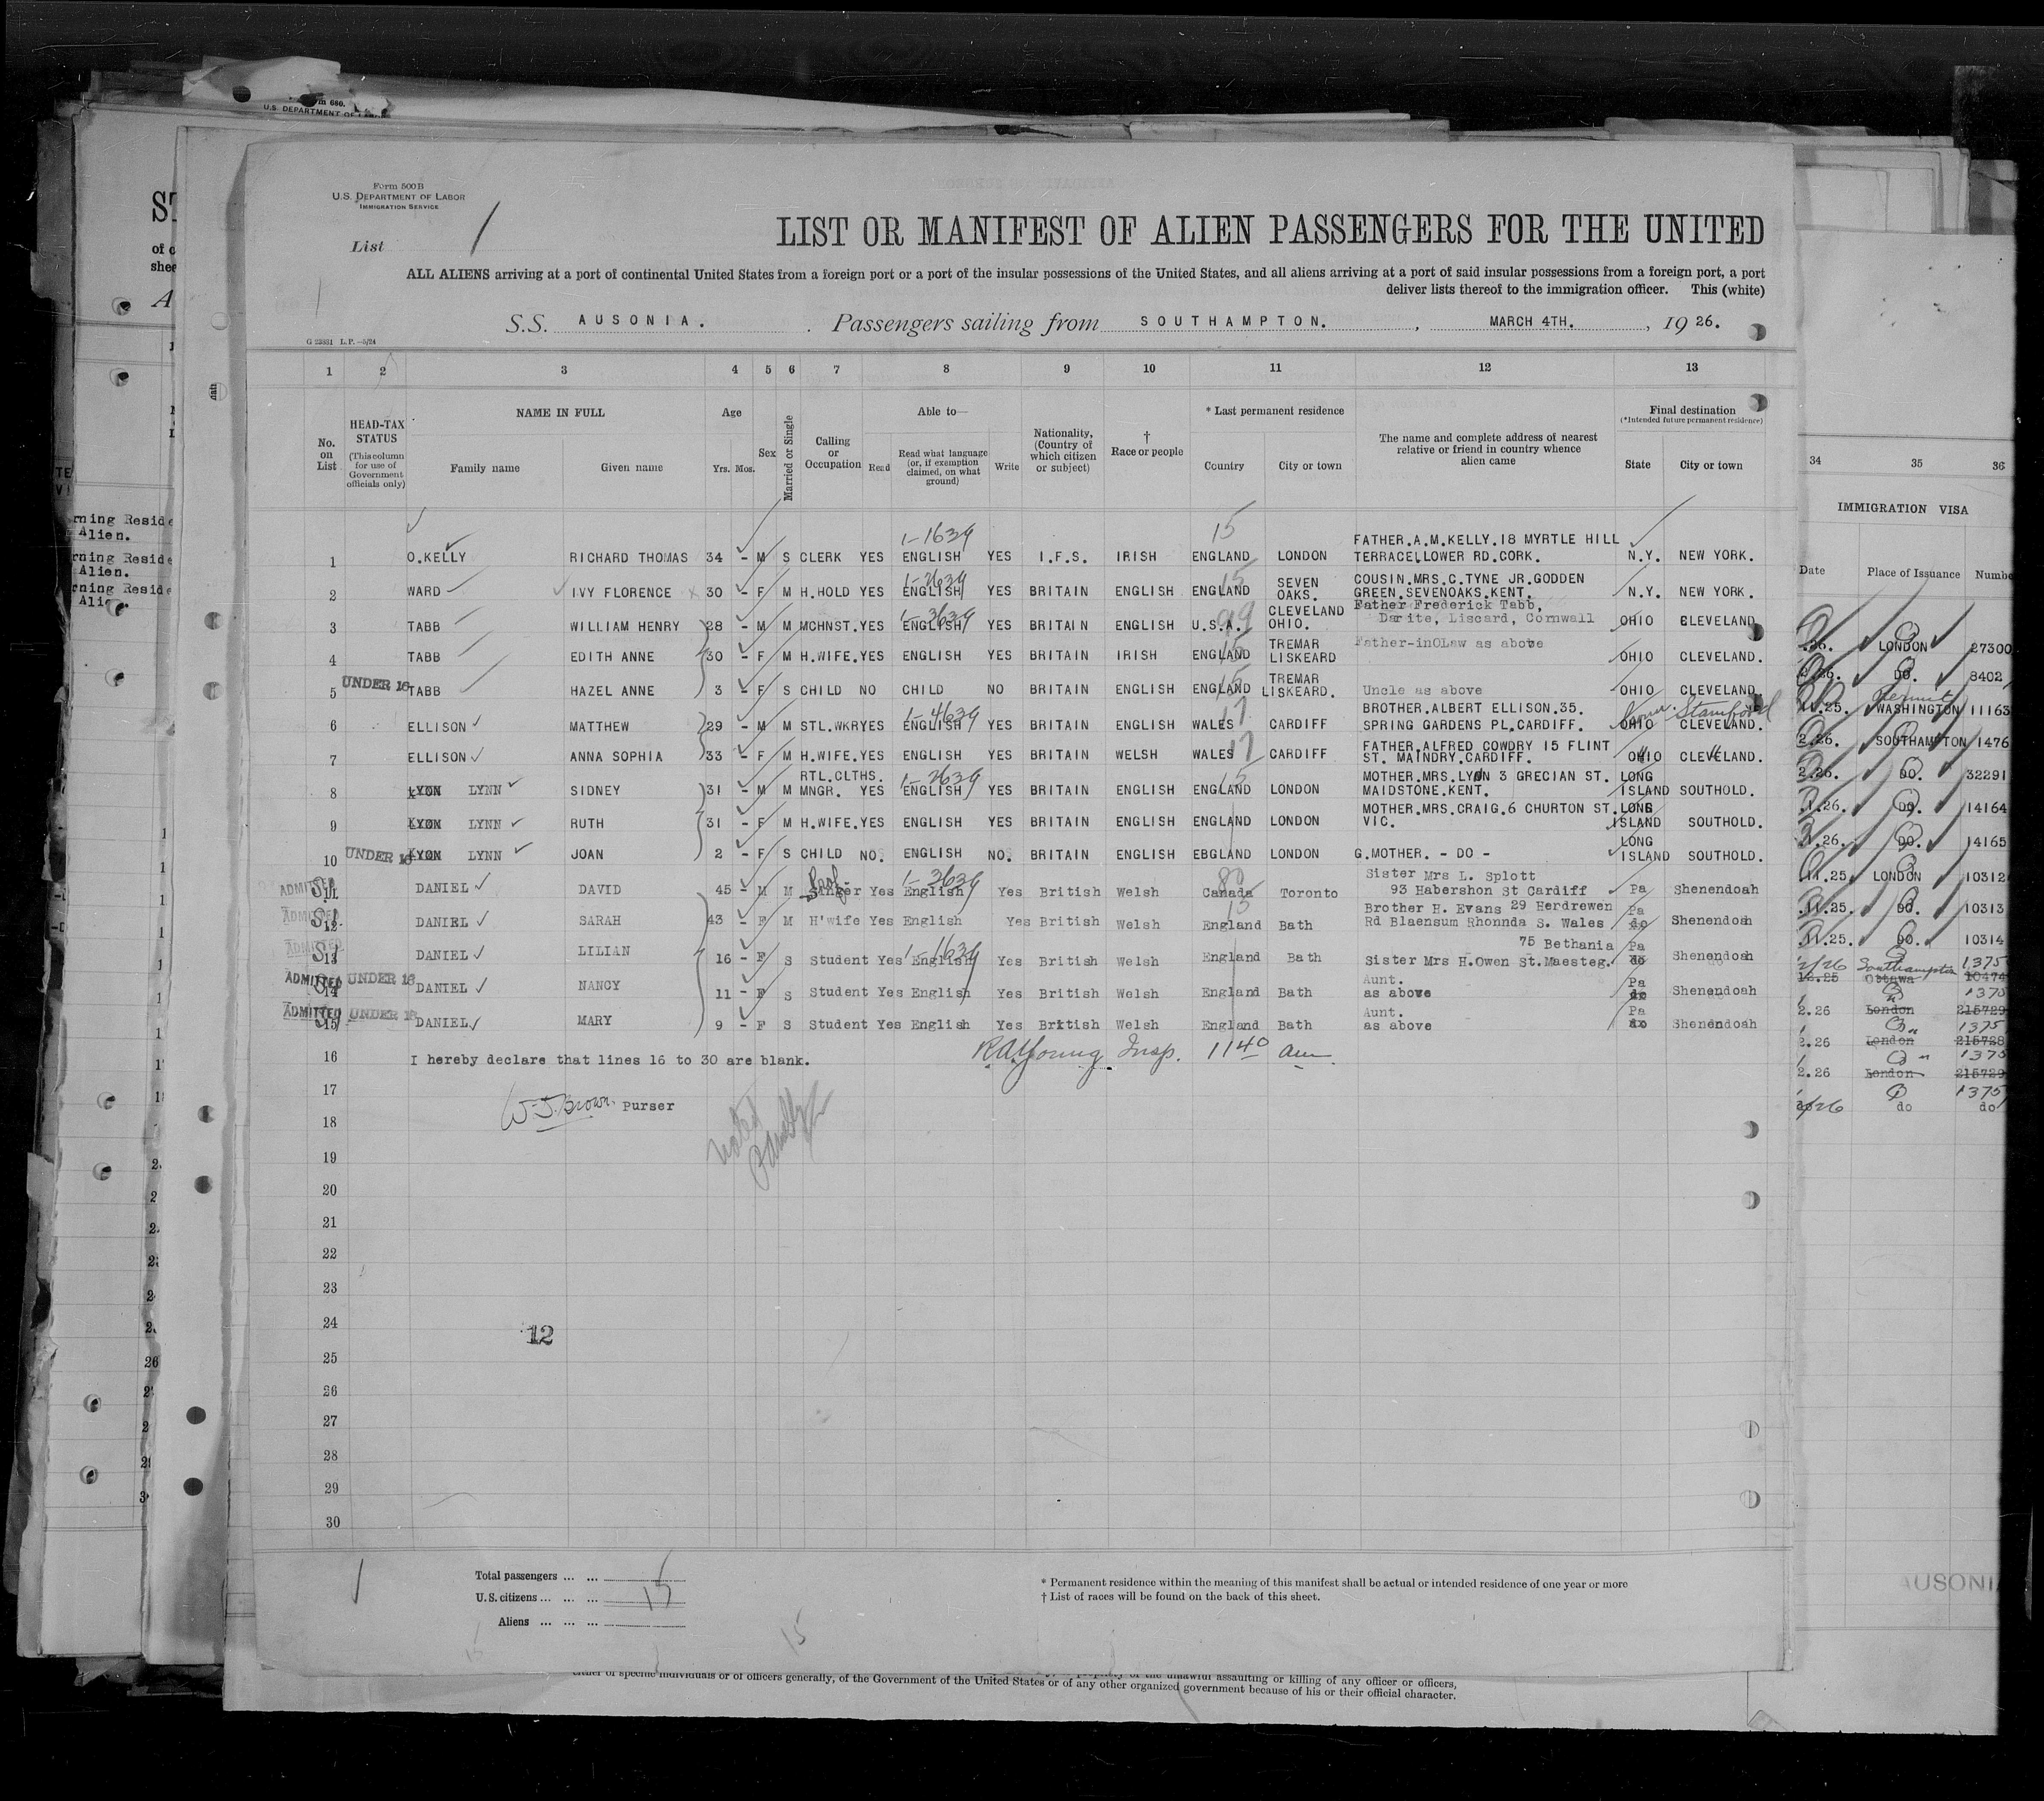 Form 500B
U.S. DEPARTMENT OF LABOR
IMMIGRATION SERVICE
List 1
LIST OR MANIFEST OF ALIEN PASSENGERS FOR THE UNITED
ALL ALIENS arriving at a port of continental United States from a foreign port or a port of the insular possessions of the United States, and all aliens arriving at a port of said insular possessions from a foreign port, a port
deliver lists thereof to the immigration officer. This (white)
S.S. AUSONIA. Passengers sailing from SOUTHAMPTON. , MARCH 4TH. , 19 26.
G 23831 L.P.—5/24
1 2 3 4 5 6 7 8 9 10 11 12 13
No. on List
HEAD-TAX STATUS (This column for use of Government officials only)
NAME IN FULL Family name Given name
Age Yrs. Mos.
Sex
Married or Single
Calling or Occupation
Able to— Read Read what language (or, if exemption claimed, on what ground) Write
Nationality, (Country of which citizen or subject)
† Race or people
* Last permanent residence Country City or town
The name and complete address of nearest relative or friend in country whence alien came
Final destination (*Intended future permanent residence) State City or town
1 O.KELLY RICHARD THOMAS 34 - M S CLERK YES ENGLISH YES I.F.S. IRISH ENGLAND LONDON FATHER.A.M.KELLY.18 MYRTLE HILL TERRACE.LOWER RD.CORK. N.Y. NEW YORK.
2 WARD IVY FLORENCE 30 - F M H.HOLD YES ENGLISH YES BRITAIN ENGLISH ENGLAND SEVEN OAKS. COUSIN.MRS.C.TYNE JR.GODDEN GREEN.SEVENOAKS.KENT. N.Y. NEW YORK.
3 TABB WILLIAM HENRY 28 - M M MCHNST. YES ENGLISH YES BRITAIN ENGLISH U.S.A. CLEVELAND OHIO. Father Frederick Tabb, Darite, Liscard, Cornwall OHIO CLEVELAND
4 TABB EDITH ANNE 30 - F M H.WIFE. YES ENGLISH YES BRITAIN IRISH ENGLAND TREMAR LISKEARD Father-inOLaw as above OHIO CLEVELAND.
5 UNDER 16 TABB HAZEL ANNE 3 - F S CHILD NO CHILD NO BRITAIN ENGLISH ENGLAND TREMAR LISKEARD. Uncle as above OHIO CLEVELAND.
6 ELLISON MATTHEW 29 - M M STL.WKR YES ENGLISH YES BRITAIN ENGLISH WALES CARDIFF BROTHER.ALBERT ELLISON.35. SPRING GARDENS PL.CARDIFF. OHIO CLEVELAND. Conn. Stamford
7 ELLISON ANNA SOPHIA 33 - F M H.WIFE. YES ENGLISH YES BRITAIN WELSH WALES CARDIFF FATHER.ALFRED COWDRY 15 FLINT ST. MAINDRY.CARDIFF. OHIO CLEVELAND.
8 LYON LYNN SIDNEY 31 - M M RTL.CLTHS. MNGR. YES ENGLISH YES BRITAIN ENGLISH ENGLAND LONDON MOTHER.MRS.LYON 3 GRECIAN ST. MAIDSTONE.KENT. LONG ISLAND SOUTHOLD.
9 LYON LYNN RUTH 31 - F M H.WIFE. YES ENGLISH YES BRITAIN ENGLISH ENGLAND LONDON MOTHER.MRS.CRAIG.6 CHURTON ST. VIC. LONG ISLAND SOUTHOLD.
10 UNDER 16 LYON LYNN JOAN 2 - F S CHILD NO. ENGLISH NO. BRITAIN ENGLISH EBGLAND LONDON G.MOTHER. - DO - LONG ISLAND SOUTHOLD.
ADMITTED 11 DANIEL DAVID 45 - M M Singer Yes English Yes British Welsh Canada Toronto Sister Mrs L. Splott 93 Habershon St Cardiff Pa Shenendoah
ADMITTED 12 DANIEL SARAH 43 - F M H'wife Yes English Yes British Welsh England Bath Brother H. Evans 29 Herdrewen Rd Blaensum Rhonnda S. Wales Pa do Shenendoah
ADMITTED 13 DANIEL LILIAN 16 - F S Student Yes English Yes British Welsh England Bath 75 Bethania Sister Mrs H.Owen St.Maesteg. Pa do Shenendoah
ADMITTED 14 UNDER 16 DANIEL NANCY 11 - F S Student Yes English Yes British Welsh England Bath Aunt. as above Pa do Shenendoah
ADMITTED 15 UNDER 16 DANIEL. MARY 9 - F S Student Yes English Yes British Welsh England Bath Aunt. as above Pa do Shenendoah
16 I hereby declare that lines 16 to 30 are blank. R A Young Insp. 11 40 am
17 W. J. Brown. Purser
18
19
20
21
22
23
24
12
25
26
27
28
29
30
Total passengers ... ...
U.S. citizens ... ... ... 15
Aliens ... ... ...
15
* Permanent residence within the meaning of this manifest shall be actual or intended residence of one year or more
† List of races will be found on the back of this sheet.
34 35 36
IMMIGRATION VISA
Date Place of Issuance Numbe
.26. LONDON 27300
2.26. DO. 8402
11.25. Permit WASHINGTON 11163
2.26. SOUTHAMPTON 1476
2.26. DO. 32291
.1.26. DO. 14164
.1.26. DO. 14165
.11.25. LONDON 10312
.11.25. DO. 10313
.11.25. DO. 10314
2/26 Southampton 1375
12.25 Ottawa 10474
1375
2.26 London 215729
1375
2.26 London 215728
1375
2.26 London 215729
1375
do do
AUSONI
of specific individuals or of officers generally, of the Government of the United States or of any other organized government because of his or their official character.
unlawful assaulting or killing of any officer or officers,